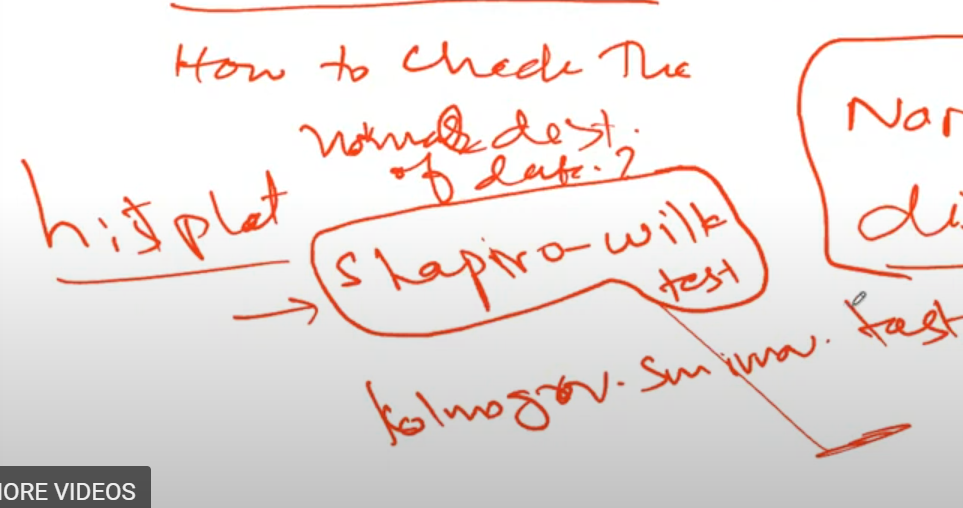 How to check The
normal dest.
of data.?
histplot
Shapiro-wilk
test
Nor
dis
kolmogrov. Smirnov. test
MORE VIDEOS